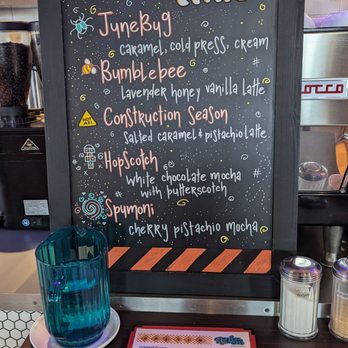 JuneBug
caramel, cold press, cream
Bumblebee
lavender honey vanilla latte
Construction Season
salted caramel & pistachio latte
Hopscotch
white chocolate mocha
with butterscotch
Spumoni
cherry pistachio mocha